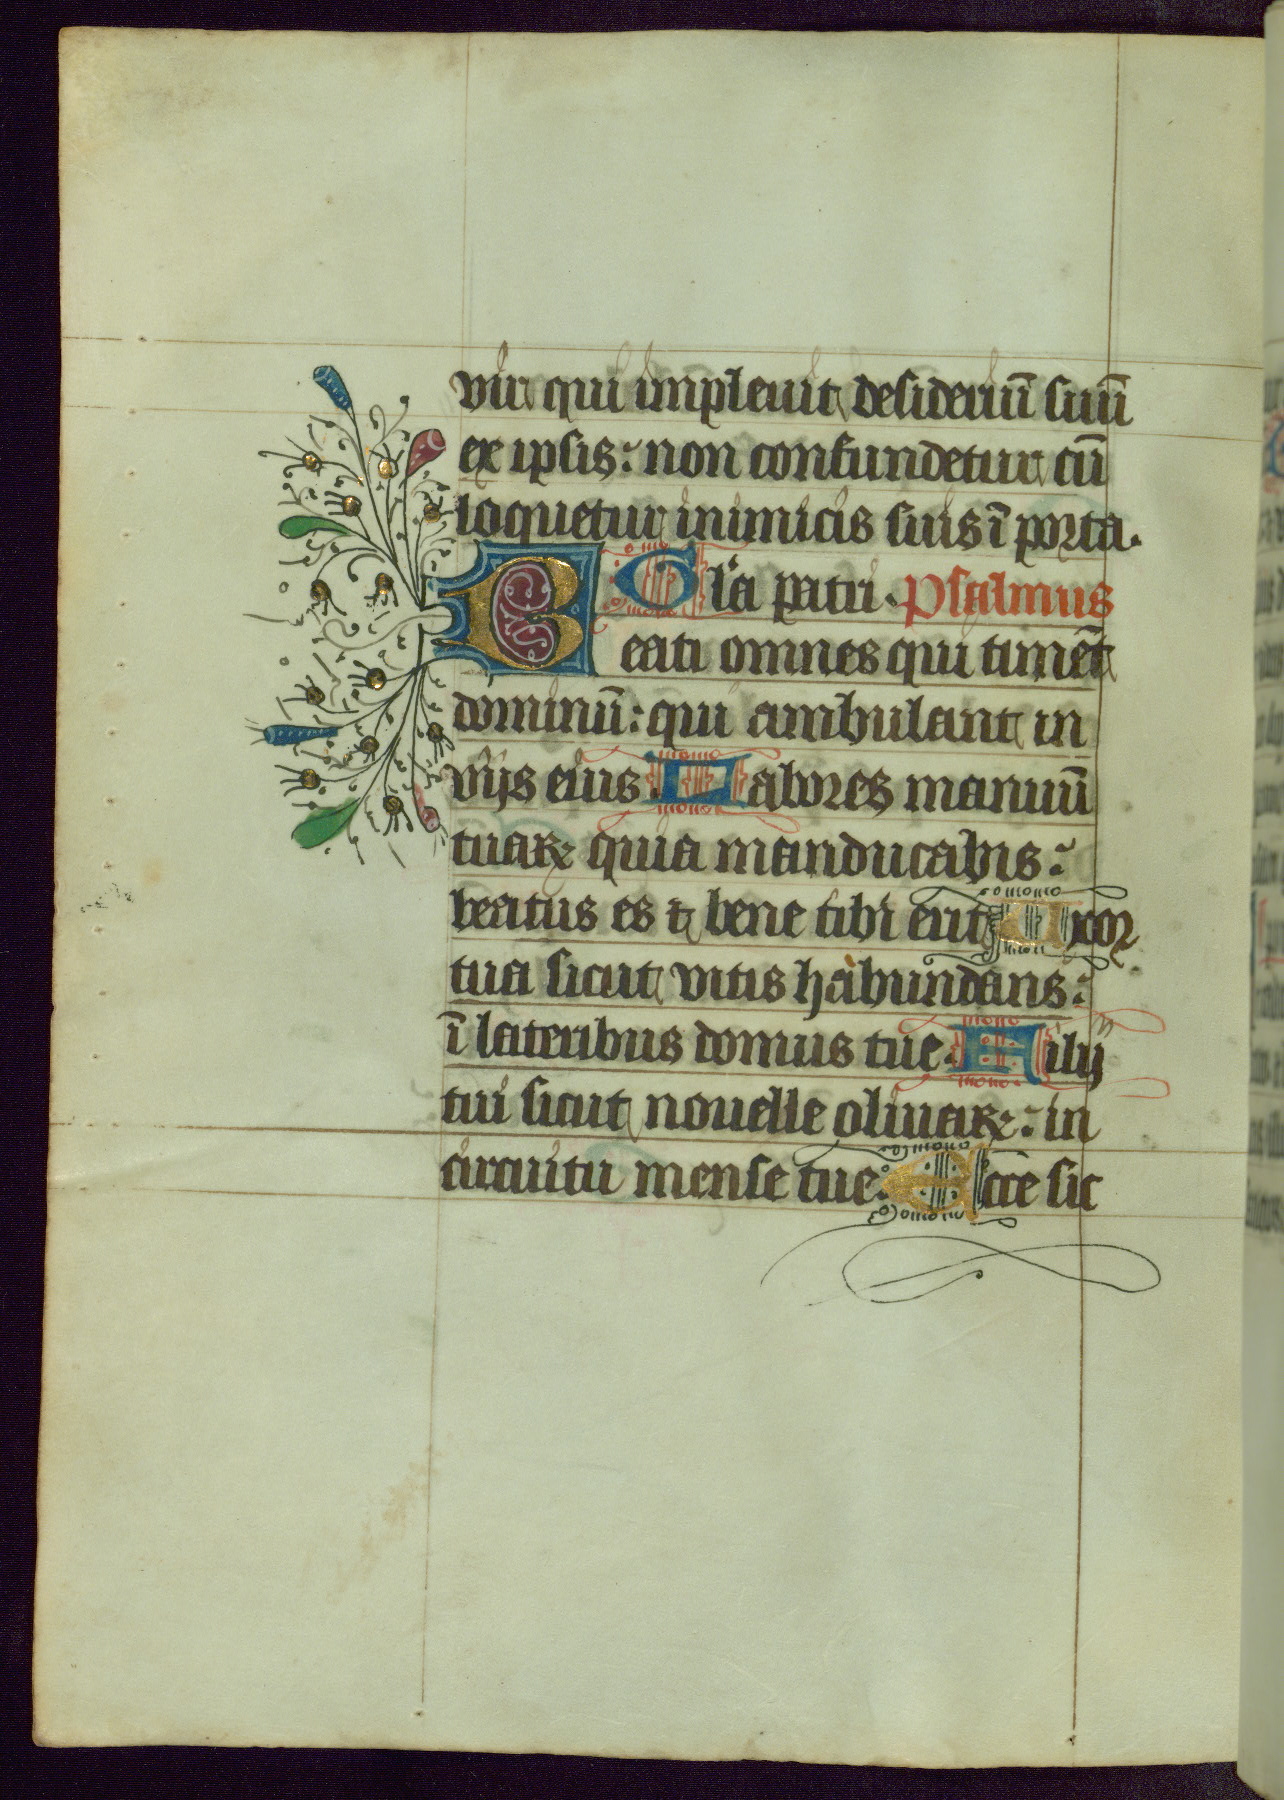 vir qui impleuit desideriū suū
ex ipsis: non confundetur cū
loquetur inimicis suis ī porta.
Gl'a patri. Psalmus
Beati omnes qui timēt
dominū: qui ambulant in
vijs eius. Labores manuū
tuaꝝ quia manducabis:
beatus es ⁊ bene tibi erit. Uxor
tua sicut vitis habundans:
ī lateribus domus tue. Filij
tui sicut nouelle oliuaꝝ: in
circuitu mense tue. Ecce sic